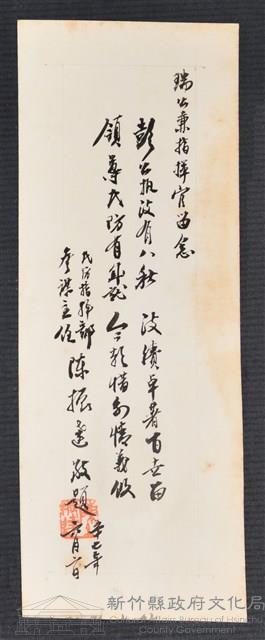 瑞公兼指揮官留念
彭公執政有八秋 政績卓著百世
領導民防有 今 惜別情
民防指揮部
參謀主任 陳振 敬題 六月 日
新竹縣政府文化局
Cultural Affairs Bureau of Hsinchu
County Government